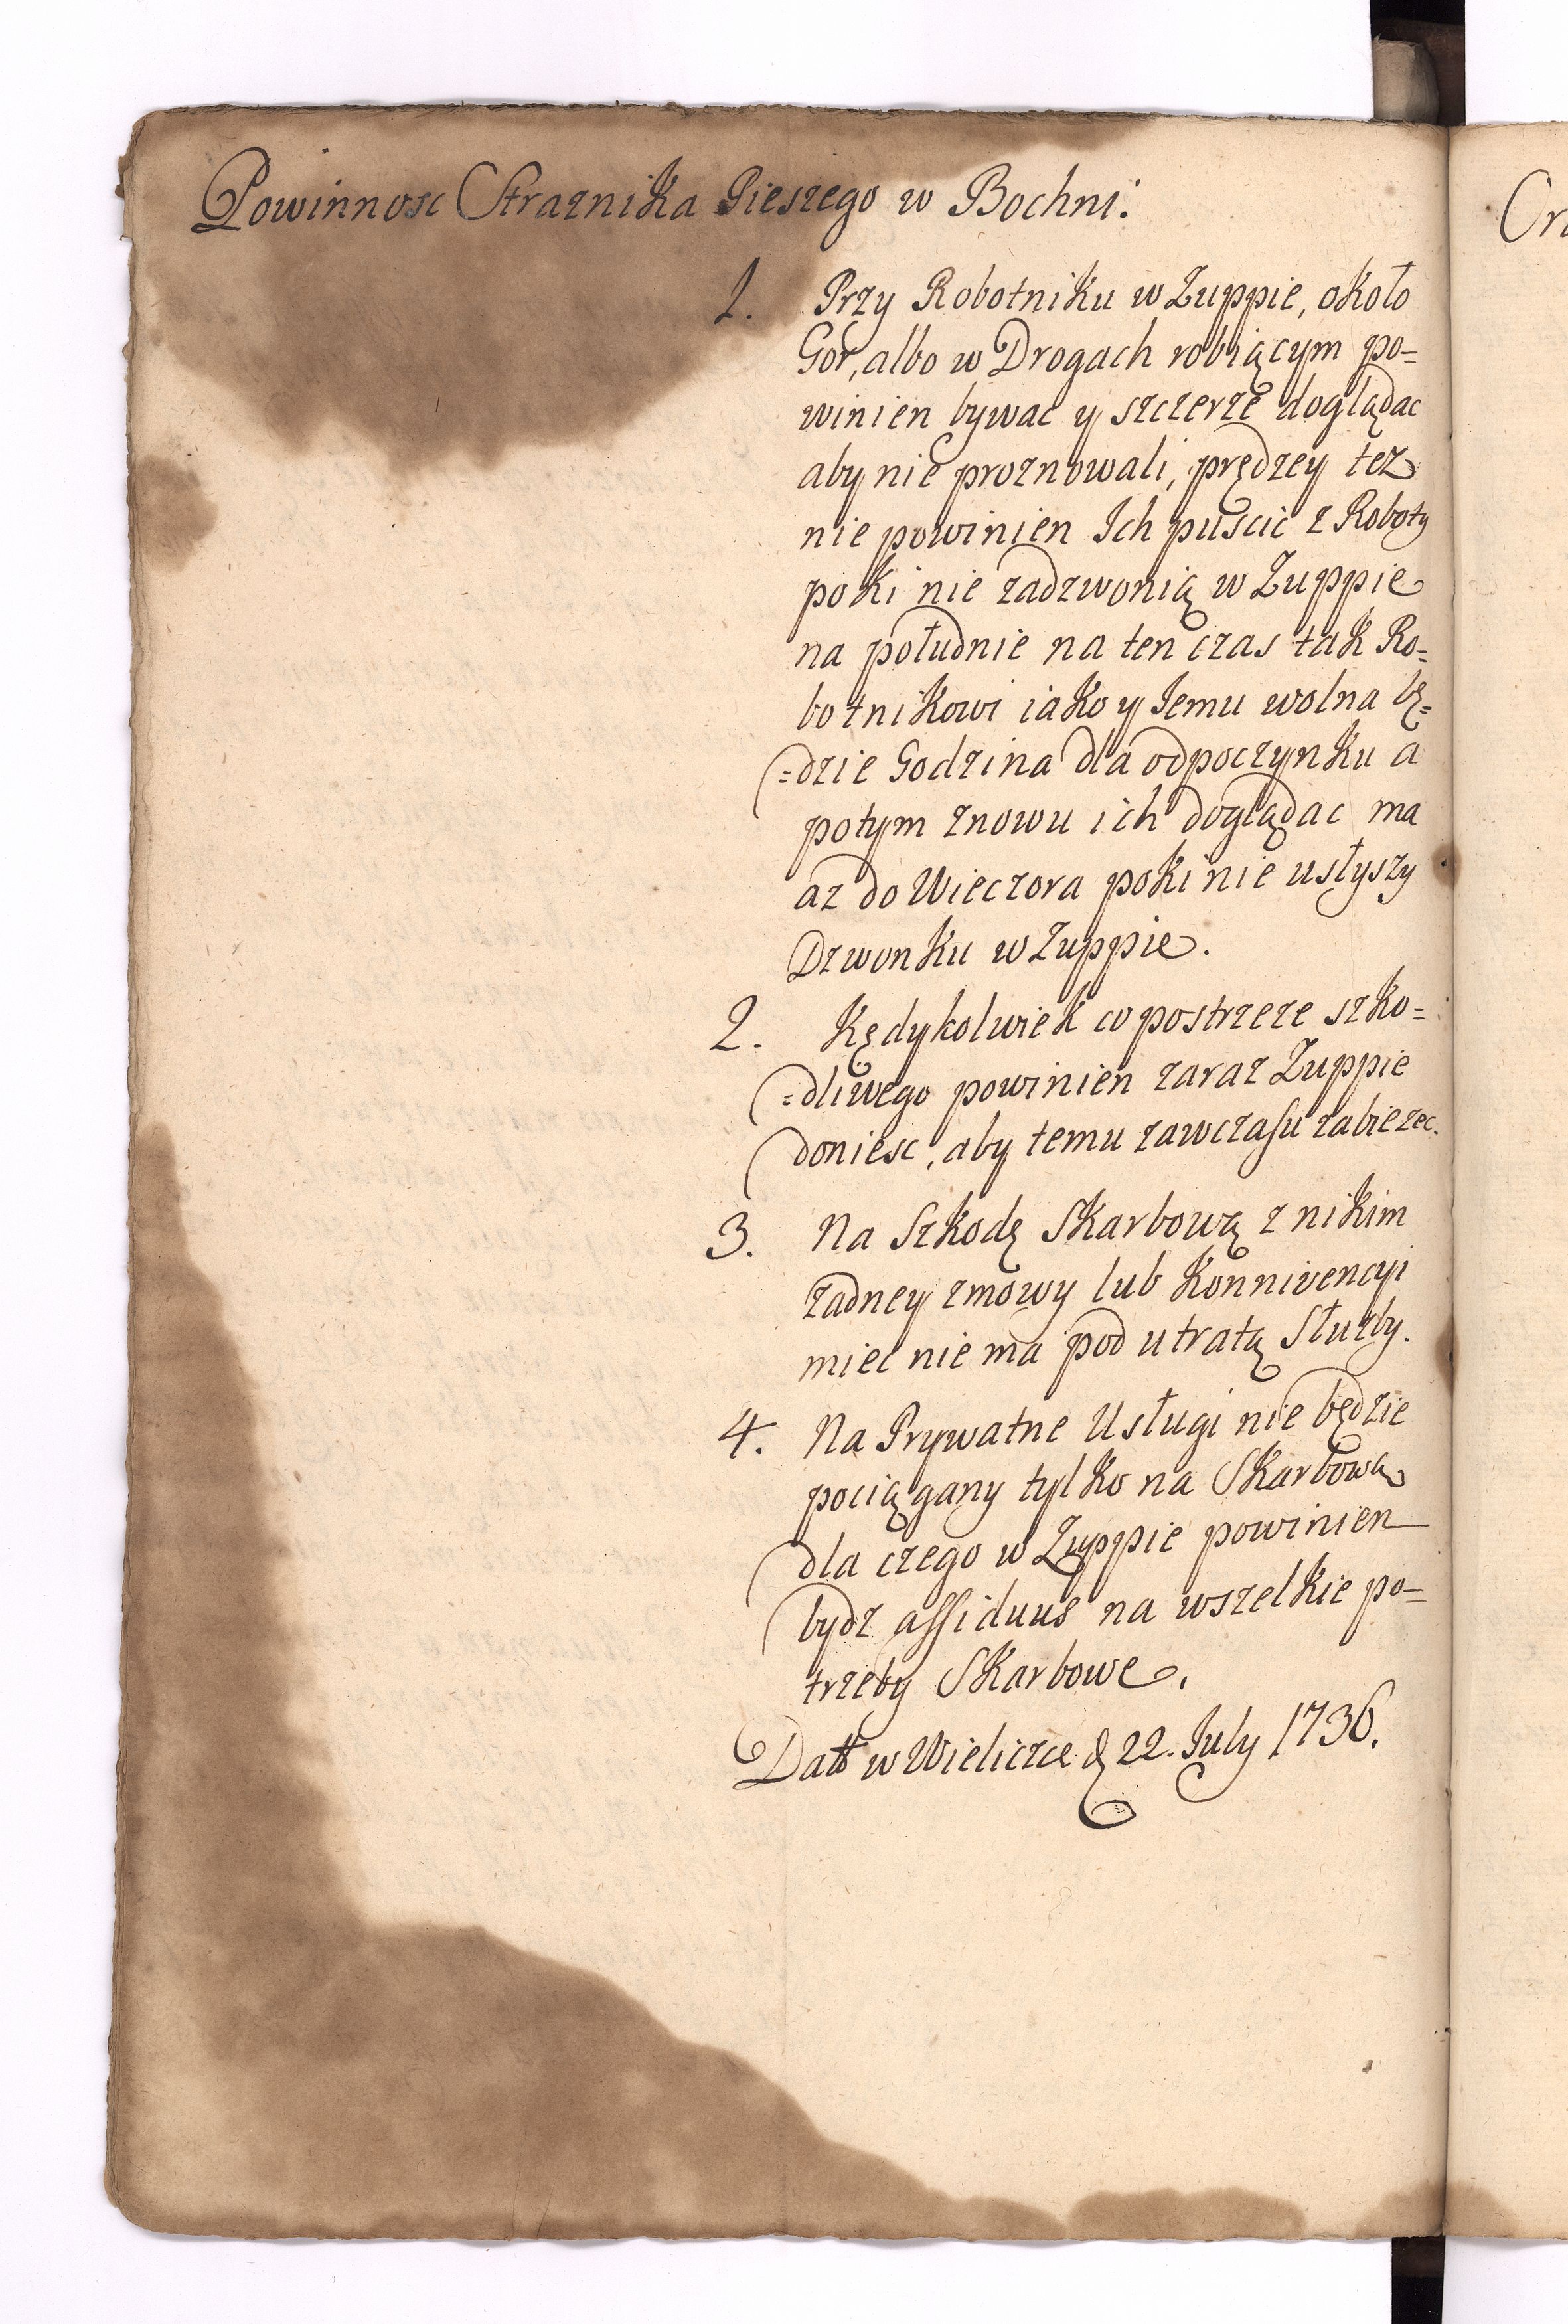 Powinnosc Straznika Pieszego w Bochni.
1. Przy Robotniku w Zuppie, około
Gor, albo w Drogach robiącym po=
winien bywac y szczerze doglądac
aby nie proznowali, prędzey tez
nie powinien Ich puscic z Roboty
poki nie zadzwonią w Zuppie
na południe na ten czas tak Ro=
botnikowi iako y Jemu wolna bę=
=dzie Godzina dla odpoczynku a
potym znowu ich doglądac ma
az do Wieczora poki nie usłyszy
Dzwonku w Zuppie.
2. Kędykolwiek co postrzeze szko=
=dliwego powinien zaraz Zuppie
doniesc, aby temu zawczasu zabiezec.
3. Na Szkodę Skarbową z nikim
zadney zmowy lub Konnivencyi
miec nie ma pod utratą Słuzby.
4. Na Prywatne Usługi nie będzie
pociągany tylko na Skarbową
dla czego w Zuppie powinien
bydz assiduus na wszelkie po=
trzeby Skarbowe.
Datt w Wieliczce d 22. July 1736.
Or